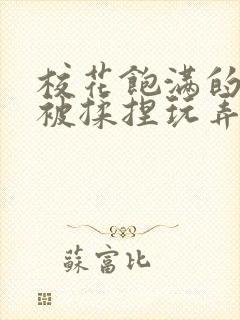 校花飽满的
被揉捏玩弄
蘇富比